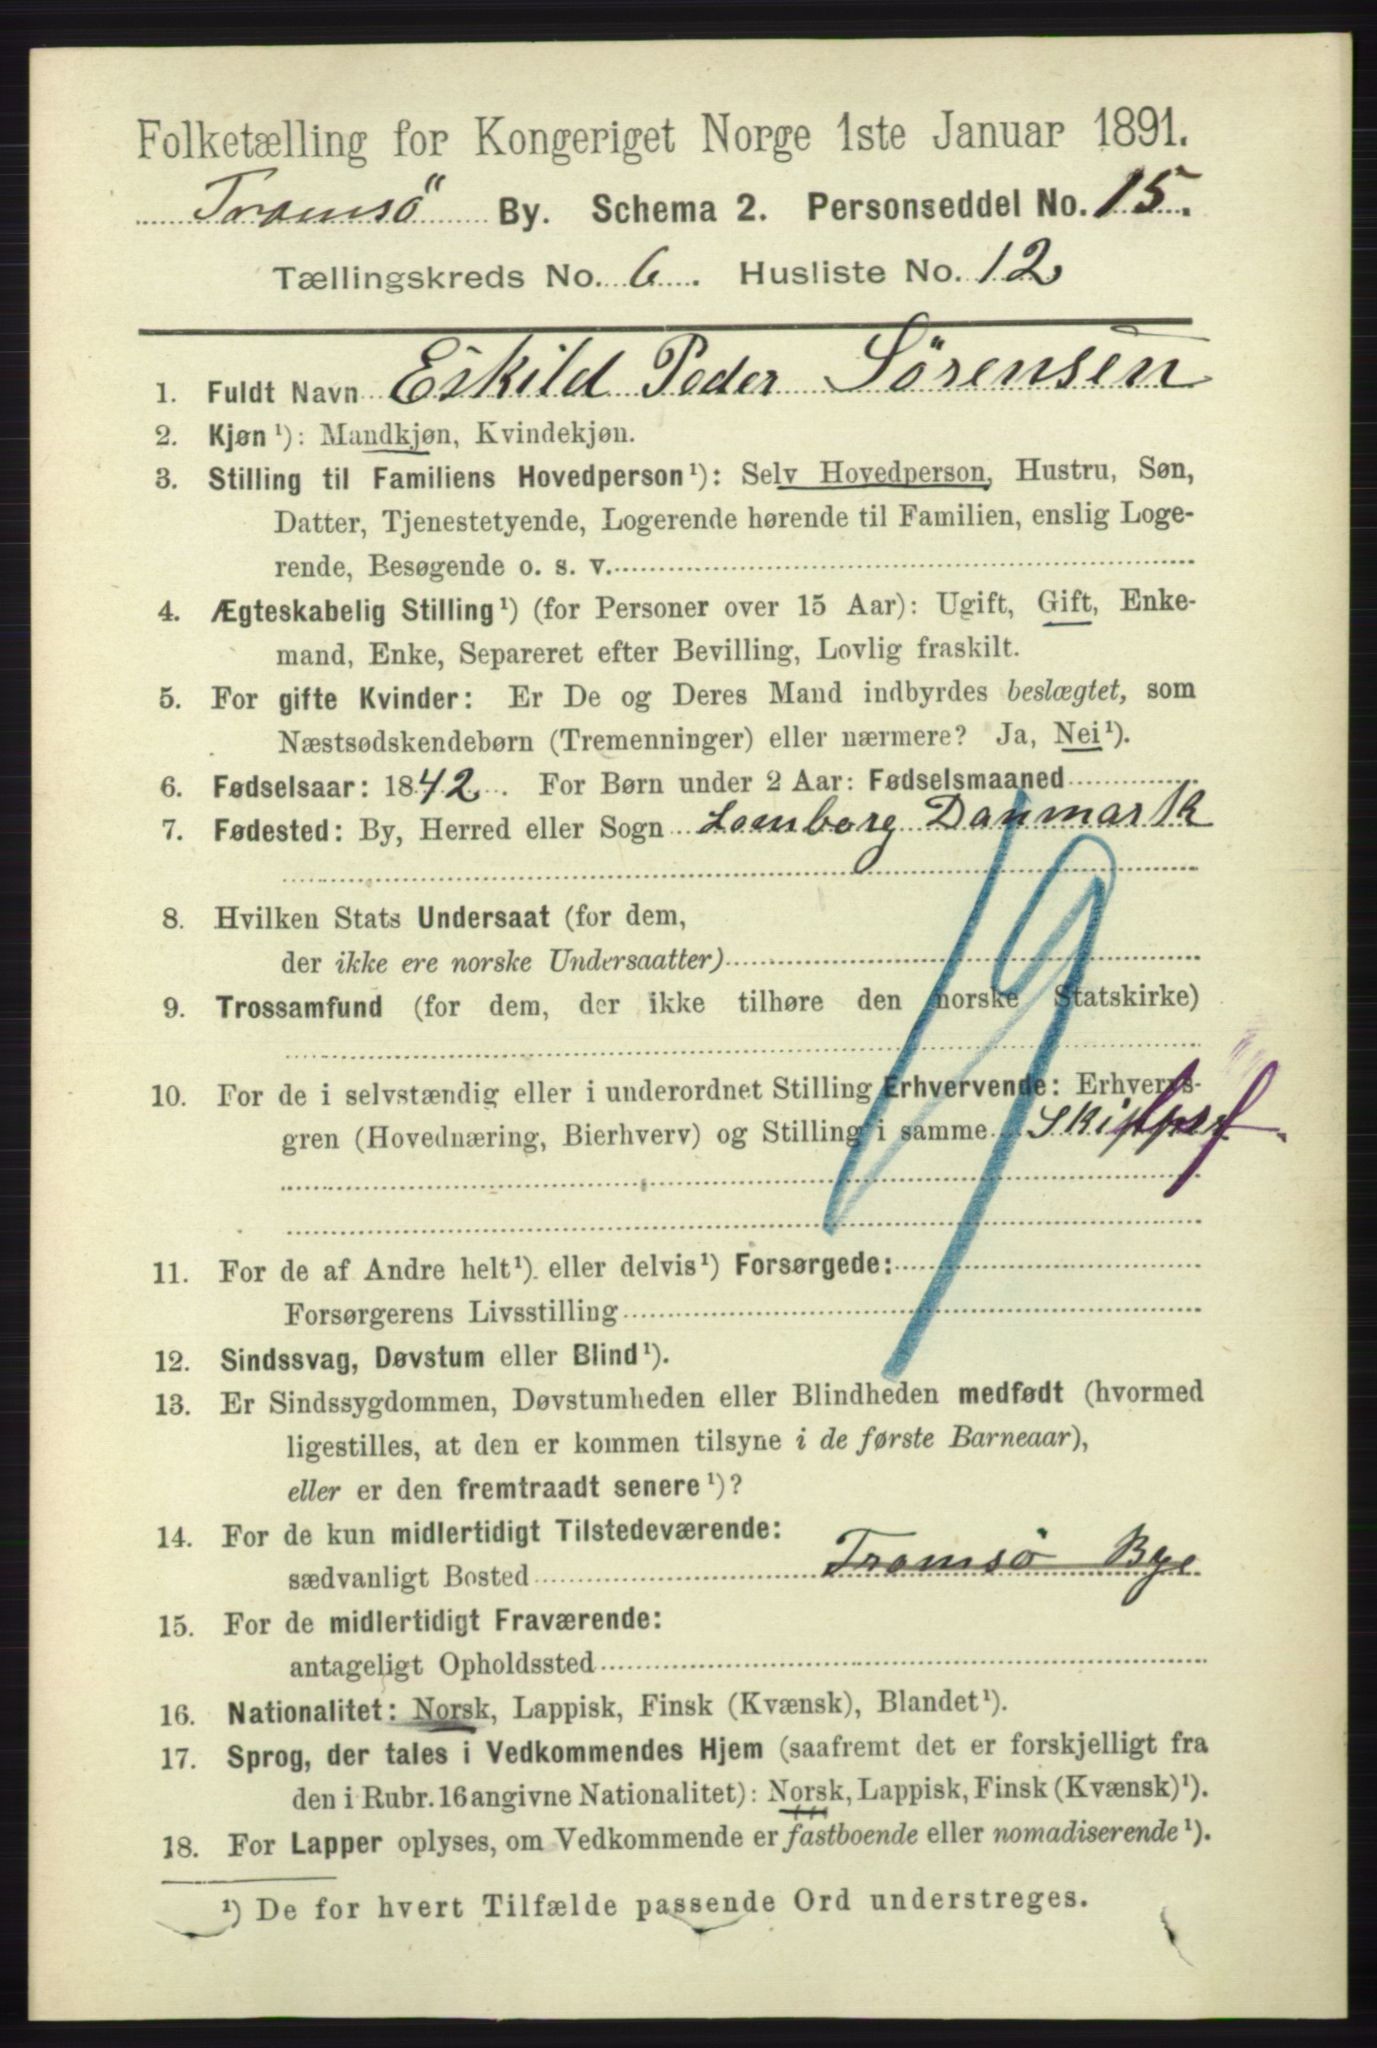 Folketælling for Kongeriget Norge 1ste Januar 1891.
Tromsö By. Schema 2. Personseddel No. 15.
Tællingskreds No. 6. Husliste No. 12
1. Fuldt Navn Eskild Peder Sörensen
2. Kjøn¹): Mandkjøn, Kvindekjøn.
3. Stilling til Familiens Hovedperson¹): Selv Hovedperson, Hustru, Søn,
Datter, Tjenestetyende, Logerende hørende til Familien, enslig Loge-
rende, Besøgende o. s. v.
4. Ægteskabelig Stilling¹) (for Personer over 15 Aar): Ugift, Gift, Enke-
mand, Enke, Separeret efter Bevilling, Lovlig fraskilt.
5. For gifte Kvinder: Er De og Deres Mand indbyrdes beslægtet, som
Næstsødskendebørn (Tremenninger) eller nærmere? Ja, Nei¹).
6. Fødselsaar: 1842. For Børn under 2 Aar: Fødselsmaaned
7. Fødested: By, Herred eller Sogn Lemborg Danmark
8. Hvilken Stats Undersaat (for dem,
der ikke ere norske Undersaatter)
9. Trossamfund (for dem, der ikke tilhøre den norske Statskirke)
19
10. For de i selvstændig eller i underordnet Stilling Erhvervende: Erhvervs-
gren (Hovednæring, Bierhverv) og Stilling i samme Skipper
11. For de af Andre helt¹) eller delvis¹) Forsørgede:
Forsørgerens Livsstilling
12. Sindssvag, Døvstum eller Blind¹).
13. Er Sindssygdommen, Døvstumheden eller Blindheden medfødt (hvormed
ligestilles, at den er kommen tilsyne i de første Barneaar),
eller er den fremtraadt senere¹)?
14. For de kun midlertidigt Tilstedeværende:
sædvanligt Bosted Tromsö Bye
15. For de midlertidigt Fraværende:
antageligt Opholdssted
16. Nationalitet: Norsk, Lappisk, Finsk (Kvænsk), Blandet¹).
17. Sprog, der tales i Vedkommendes Hjem (saafremt det er forskjelligt fra
den i Rubr. 16 angivne Nationalitet): Norsk, Lappisk, Finsk (Kvænsk)¹).
18. For Lapper oplyses, om Vedkommende er fastboende eller nomadiserende¹).
¹) De for hvert Tilfælde passende Ord understreges.